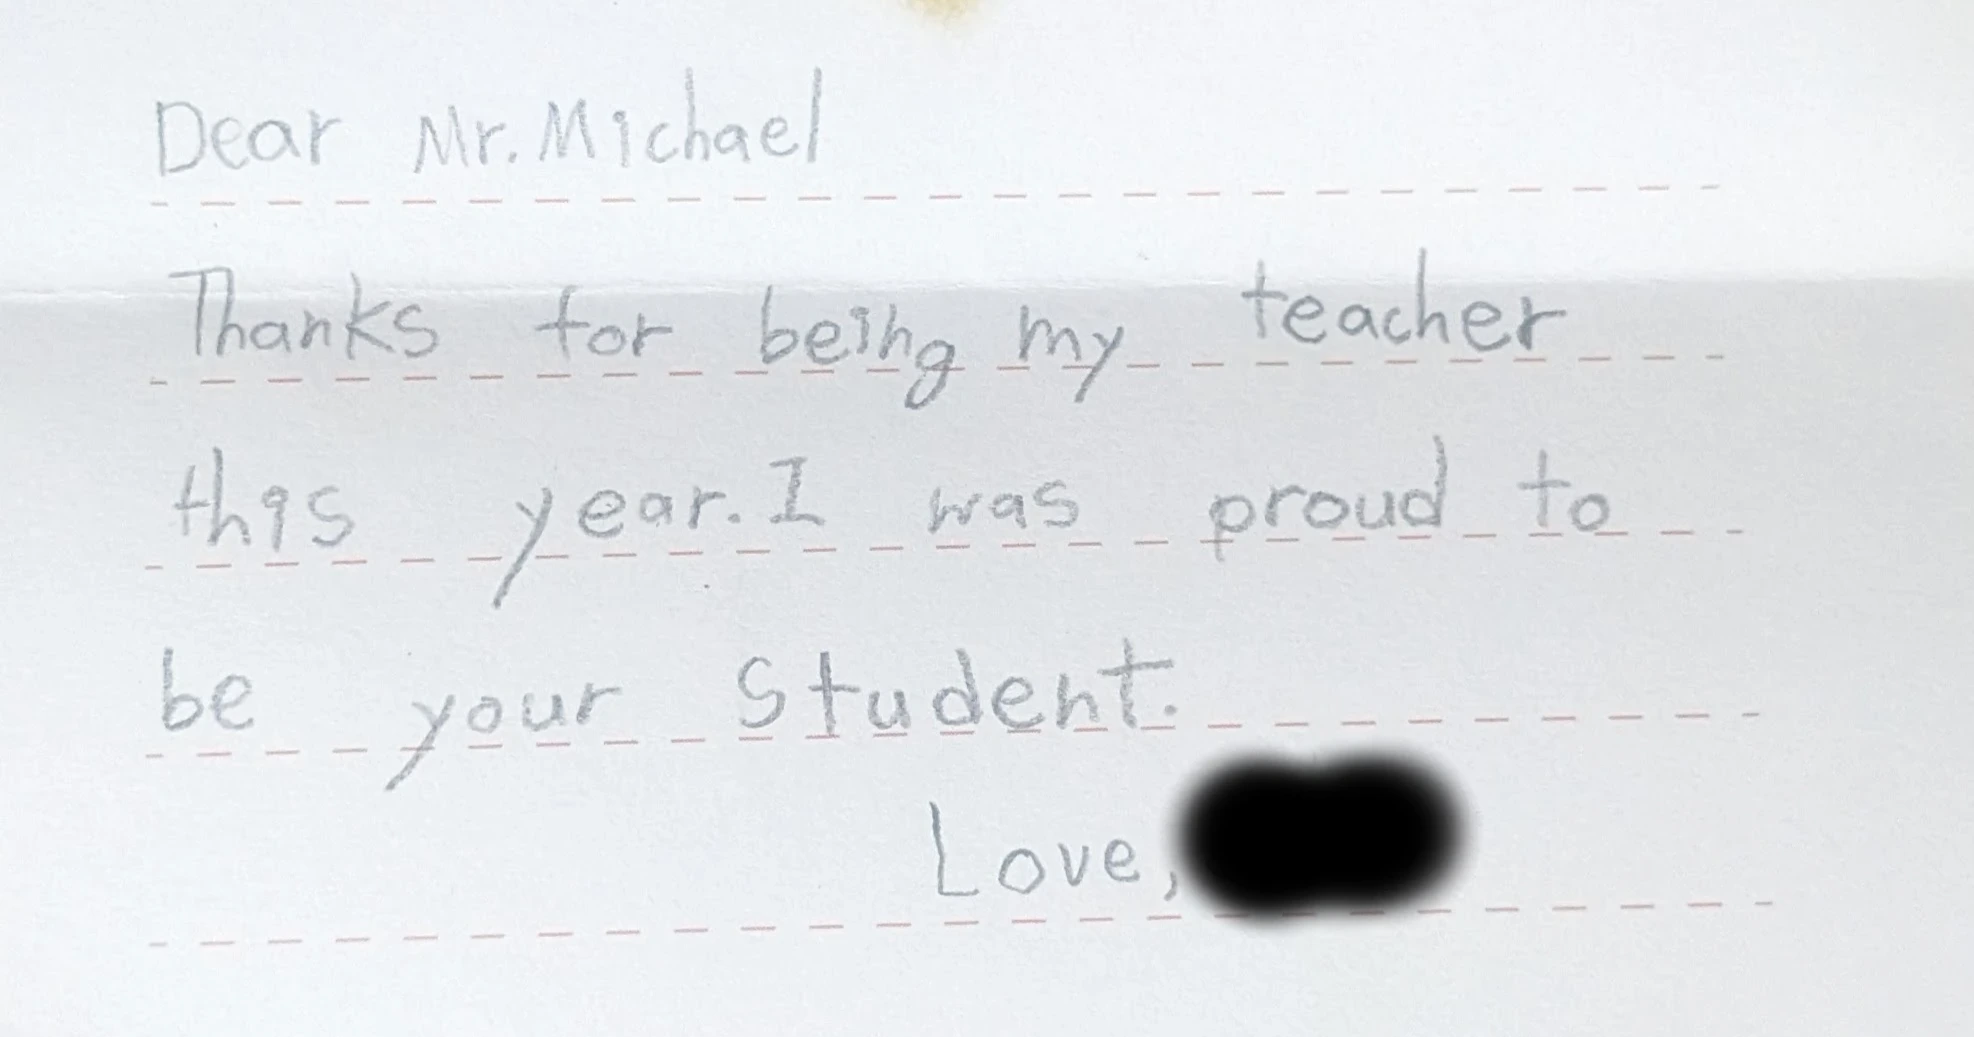 Dear Mr. Michael
Thanks for being my teacher
this year. I was proud to
be your student.
Love,